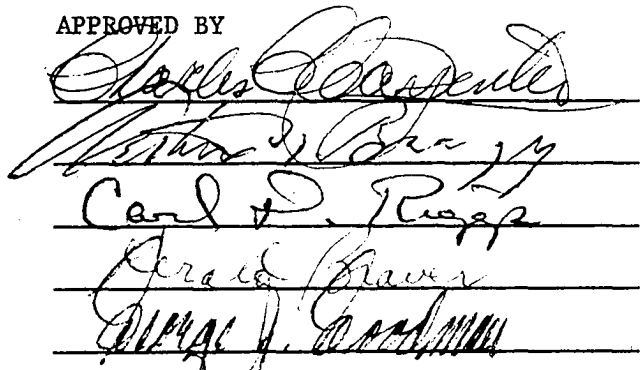 APPROVED BY
Charles C. Carpenter
Arthur N. Bragg
Carl D. Riggs
Gerald Braver
George J. Goodman